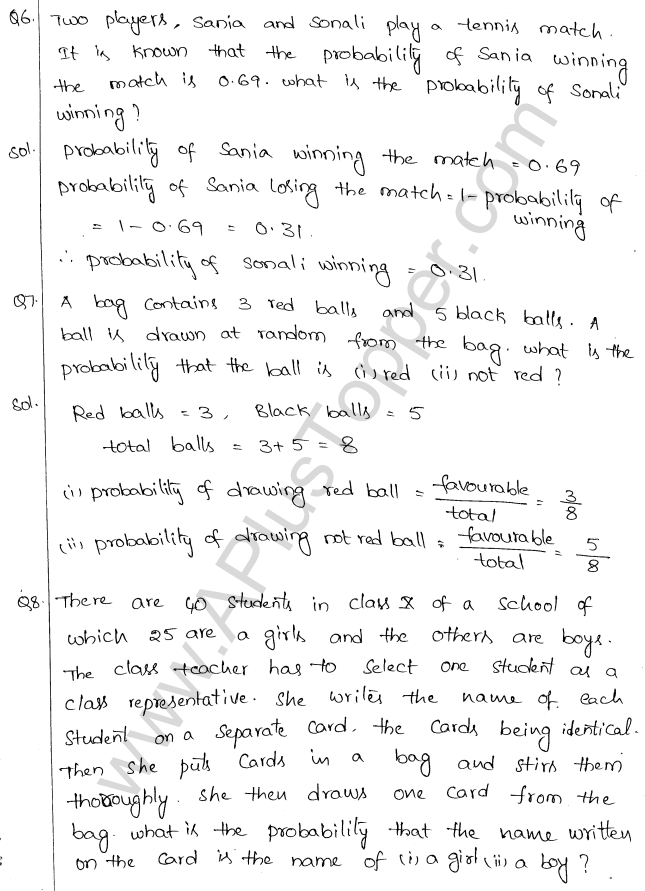 Q6. Two players, Sania and Sonali play a tennis match.
It is known that the probability of Sania winning
the match is 0.69. what is the probability of Sonali
winning?
Sol. probability of Sania winning the match = 0.69
probability of Sania losing the match = 1 - probability of
winning
= 1 - 0.69 = 0.31.
∴ probability of sonali winning = 0.31.
Q7. A bag contains 3 red balls and 5 black balls. A
ball is drawn at random from the bag. what is the
probability that the ball is (i) red (ii) not red?
Sol. Red balls = 3, Black balls = 5
total balls = 3+5 = 8
(i) probability of drawing red ball = favourable/total = 3/8
(ii) probability of drawing not red ball = favourable/total = 5/8
Q8. There are 40 students in class X of a school of
which 25 are a girls and the others are boys.
The class teacher has to select one student as a
class representative. She writes the name of each
student on a separate card, the cards being identical.
Then she puts cards in a bag and stirs them
thoroughly. she then draws one card from the
bag. what is the probability that the name written
on the card is the name of (i) a girl (ii) a boy?
www.APlusTopper.com